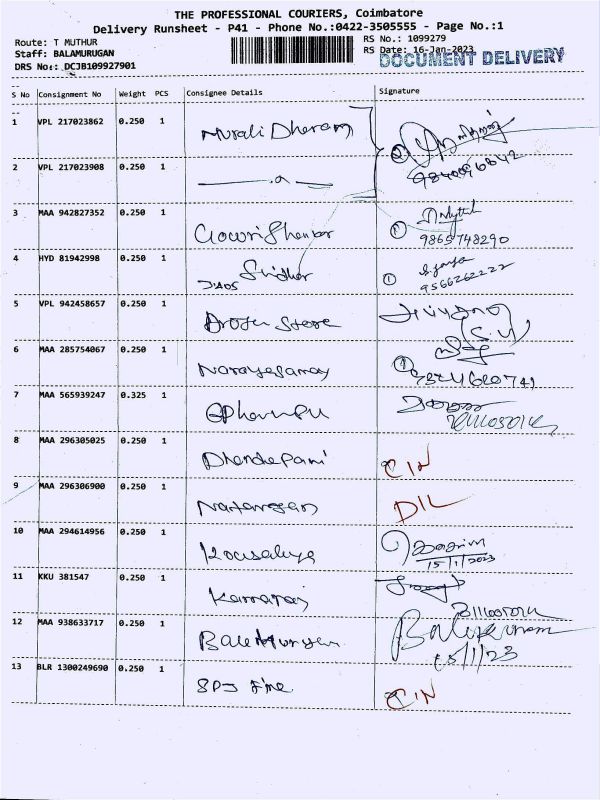 THE PROFESSIONAL COURIERS, Coimbatore
Delivery Runsheet - P41 - Phone No.:0422-3505555 - Page No.:1
Route: T MUTHUR
RS No.: 1099279
Staff: BALAMURUGAN
RS Date: 16-Jan-2023
DOCUMENT DELIVERY
DRS No: DCJB109927901
S No Consignment No Weight PCS Consignee Details Signature
1 VPL 217023862 0.250 1 Murali Dharan
2 VPL 217023908 0.250 1
3 MAA 942827352 0.250 1 Gowri Shankar
9865748290
4 HYD 81942998 0.250 1 Sridhar
9566262222
5 VPL 942458657 0.250 1 Store
6 MAA 285754067 0.250 1 Narayasamy
7 MAA 565939247 0.325 1
8 MAA 296305025 0.250 1 Dhandapani CIN
9 MAA 296306900 0.250 1 Natarajan DIL
10 MAA 294614956 0.250 1 Kousalya
15/1/2023
11 KKU 381547 0.250 1 Kamaraj
12 MAA 938633717 0.250 1 Balamurugan
15/1/23
13 BLR 1300249690 0.250 1 SPJ Fine CIN